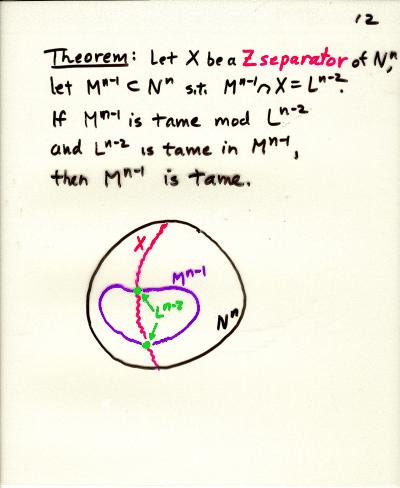 12
Theorem: Let X be a Z separator of Nⁿ,
let Mⁿ⁻¹ ⊂ Nⁿ s.t. Mⁿ⁻¹ ∩ X = Lⁿ⁻².
If Mⁿ⁻¹ is tame mod Lⁿ⁻²
and Lⁿ⁻² is tame in Mⁿ⁻¹,
then Mⁿ⁻¹ is tame.
X
Mⁿ⁻¹
Lⁿ⁻²
Nⁿ